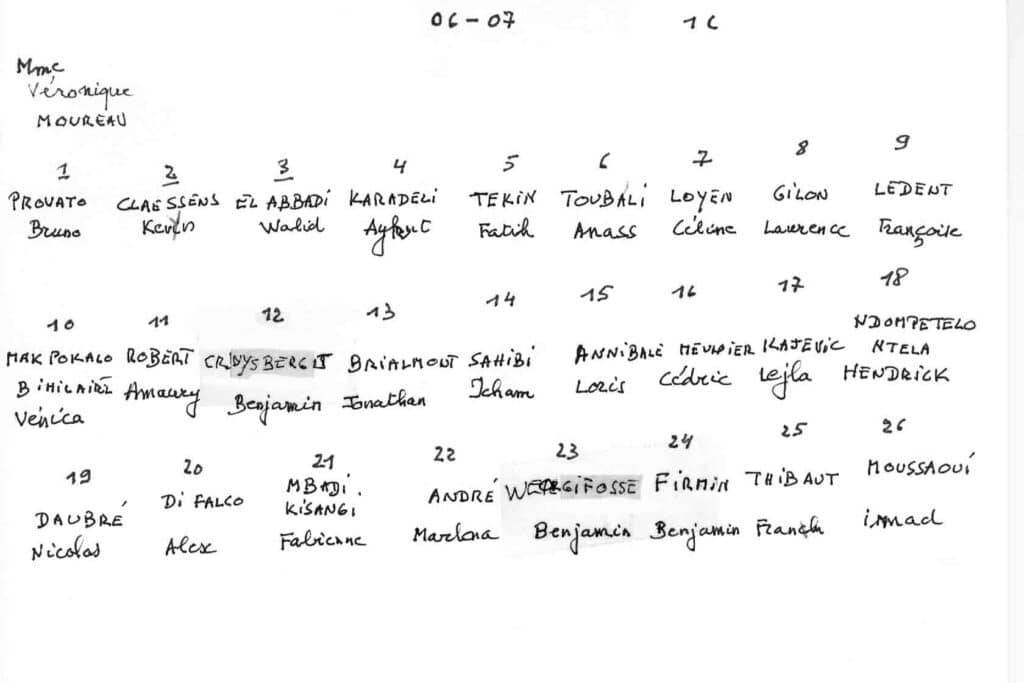 06-07 1C
Mme
Véronique
MOUREAU
1 2 3 4 5 6 7 8 9
PROVATO CLAESSENS EL ABBADI KARADELI TEKIN TOUBALI LOYEN GILON LEDENT
Bruno Kevin Walid Fatih Anass Céline Laurence Françoise
10 11 12 13 14 15 16 17 18
MAKPOKALO ROBERT BRIALMONT SAHIBI ANNIBALE MEUNIER KAJEVIC NDOMPETELO
BIHILAIRE Amaury Benjamin Jonathan Icham Loris Cédric Lejla NTELA
Vénica HENDRICK
19 20 21 22 23 24 25 26
DAUBRÉ DI FALCO MBADI. ANDRÉ FIRMIN THIBAUT MOUSSAOUÍ
KISANGI
Nicolas Alex Fabienne Benjamin Benjamin Franck immad